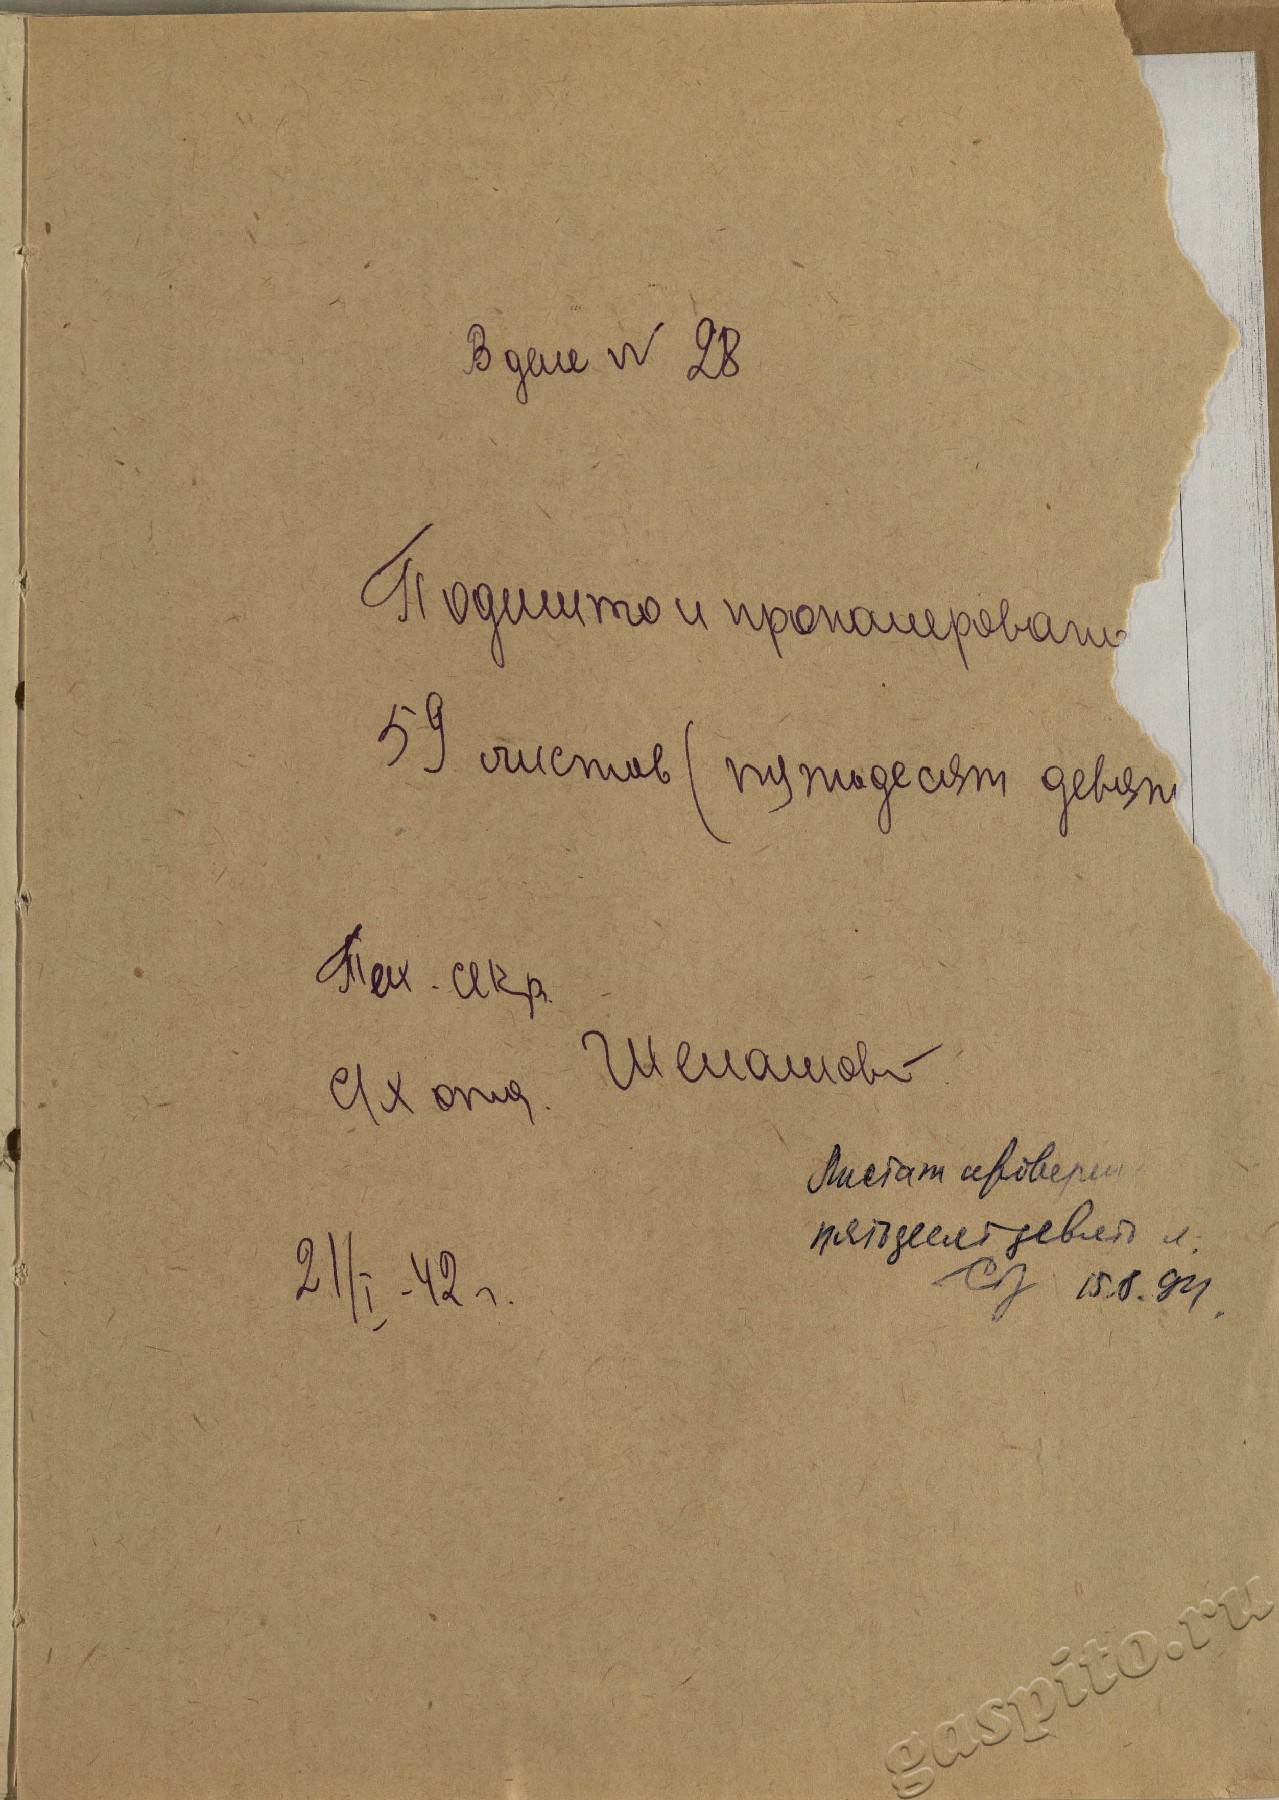 В деле № 28
Подшито и прономеровано
59 листов (пятьдесят девят
Тех. секр.
Шемашов
21/I -42 г.
Листаж проверен
пятьдесят девять л.
15.8. 94.
gaspito.ru